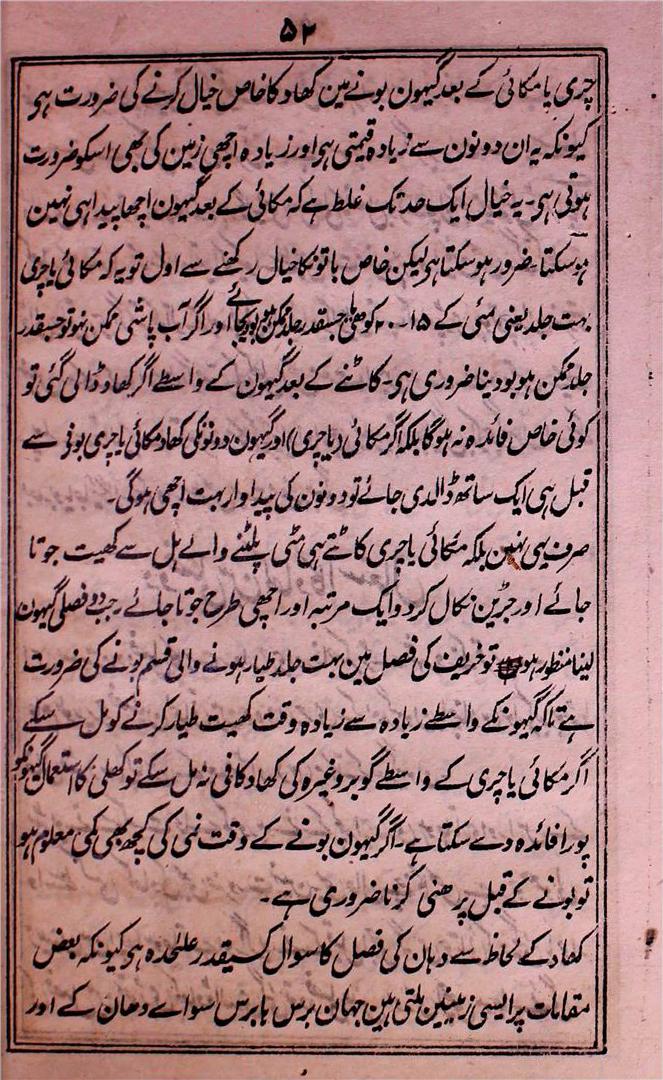 ۵۲
چری یا مکائی کے بعد گیہون بونے مین کھاد کا خاص خیال کرنے کی ضرورت ہی
کیونکہ یہ ان دونون سے زیادہ قیمتی ہی اور زیادہ اچھی زمین کی بھی اسکو ضرورت
ہوتی ہی۔ یہ خیال ایک حد تک غلط ہے کہ مکائی کے بعد گیہون اچھا پیدا ہی نہین
ہوسکتا۔ ضرور ہوسکتا ہی لیکن خاص باتونکا خیال رکھنے سے اول تو یہ کہ مکائی یا چری
بہت جلد یعنی مئی کے ۱۵۔۲۰ کو جسقدر جلد ممکن ہو بودیجائے اور اگر آب پاشی ممکن نہو تو جسقدر
جلد ممکن ہو بودینا ضروری ہی۔ کاٹنے کے بعد گیہون کے واسطے اگر کھاد ڈالی گئی تو
کوئی خاص فائدہ نہ ہوگا بلکہ اگر مکائی (یا چری) اور گیہون دونونکی کھاد مکائی یا چری بونی سے
قبل ہی ایک ساتھ ڈالدی جائے تو دونون کی پیداوار بہت اچھی ہوگی۔
صرف یہی نہین بلکہ مکائی یا چری کاٹتے ہی مٹی پلٹنے والے ہل سے کھیت جوتا
جائے اور جڑین نکال کر دوایک مرتبہ اور اچھی طرح جوتا جائے۔ جب دو فصلی گیہون
لینا منظور ہو تو خریف کی فصل مین بہت جلد طیار ہونے والی قسم بونے کی ضرورت
ہے تاکہ گیہونکے واسطے زیادہ سے زیادہ وقت کھیت طیار کرنے کو مل سکے
اگر مکائی یا چری کے واسطے گوبر وغیرہ کی کھاد کافی نہ مل سکے تو کھلی کا استعمال گیہونکو
پورا فائدہ دے سکتا ہے۔ اگر گیہون بونے کے وقت نمی کی کچھ بھی کمی معلوم ہو
تو بونے کے قبل پرھنی کرنا ضروری ہے۔
کھاد کے لحاظ سے دہان کی فصل کا سوال کسیقدر علٰحدہ ہی کیونکہ بعض
مقامات پر ایسی زمینین ملتی ہین جہان برس ہا برس سواے دھان کے اور